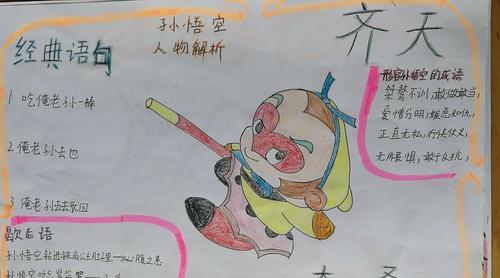 孙悟空
人物解析
经典语句
1.吃俺老孙一棒
2.俺老孙去也
3.俺老孙去去就回
歇后语
孙悟空钻进铁扇公主肚里—心腹之患
齐天
形容孙悟空的成语
桀骜不训,敢做敢当,
爱憎分明,嫉恶如仇,
正直无私,行侠仗义,
无所畏惧,敢于反抗,